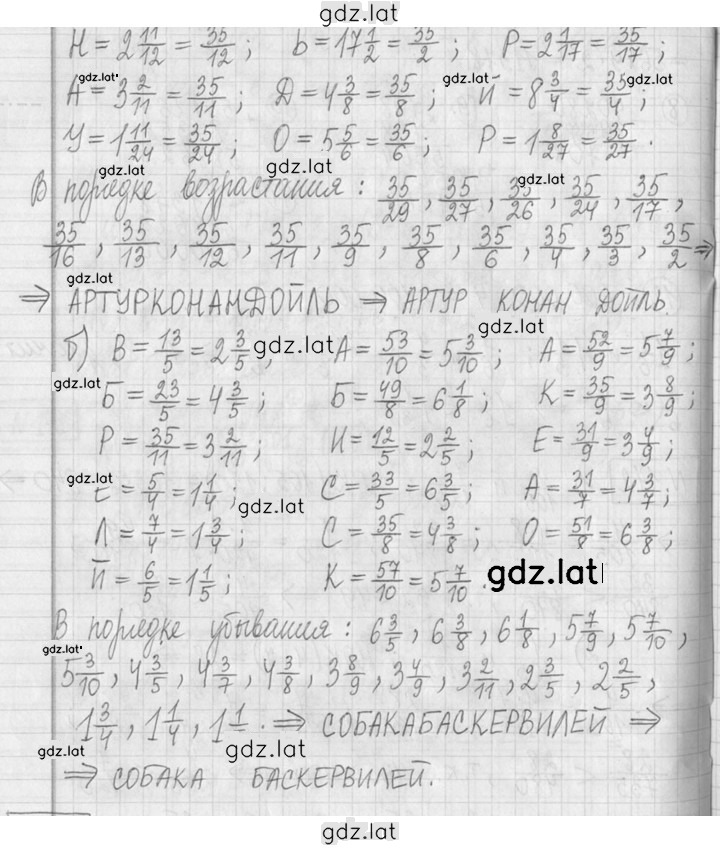 gdz.lat
Н = 2 11/12 = 35/12 ; Ь = 17 1/2 = 35/2 ; Р = 2 1/17 = 35/17 ;
gdz.lat gdz.lat gdz.lat
А = 3 2/11 = 35/11 ; Д = 4 3/8 = 35/8 ; Й = 8 3/4 = 35/4 ;
У = 1 11/24 = 35/24 ; О = 5 5/6 = 35/6 ; Р = 1 8/27 = 35/27 .
gdz.lat gdz.lat gdz.lat
В порядке возрастания : 35/29 , 35/27 , 35/26 , 35/24 , 35/17 ,
35/16 , 35/13 , 35/12 , 35/11 , 35/9 , 35/8 , 35/6 , 35/4 , 35/3 , 35/2 ⇒
gdz.lat
⇒ АРТУРКОНАНДОЙЛЬ ⇒ АРТУР КОНАН ДОЙЛЬ.
gdz.lat
б) В = 13/5 = 2 3/5 , gdz.lat А = 53/10 = 5 3/10 ; А = 52/9 = 5 7/9 ;
gdz.lat
Б = 23/5 = 4 3/5 ; Б = 49/8 = 6 1/8 ; К = 35/9 = 3 8/9 ;
Р = 35/11 = 3 2/11 ; И = 12/5 = 2 2/5 ; Е = 31/9 = 3 4/9 ;
gdz.lat
Е = 5/4 = 1 1/4 ; gdz.lat С = 33/5 = 6 3/5 ; А = 31/7 = 4 3/7 ;
Л = 7/4 = 1 3/4 ; С = 35/8 = 4 3/8 ; О = 51/8 = 6 3/8 ;
Й = 6/5 = 1 1/5 ; К = 57/10 = 5 7/10 . gdz.lat
В порядке убывания : 6 3/5 , 6 3/8 , 6 1/8 , 5 7/9 , 5 7/10 ,
gdz.lat
5 3/10 , 4 3/5 , 4 3/7 , 4 3/8 , 3 8/9 , 3 4/9 , 3 2/11 , 2 3/5 , 2 2/5 ,
1 3/4 , 1 1/4 , 1 1/ . ⇒ СОБАКАБАСКЕРВИЛЕЙ ⇒
gdz.lat gdz.lat
⇒ СОБАКА БАСКЕРВИЛЕЙ.
gdz.lat